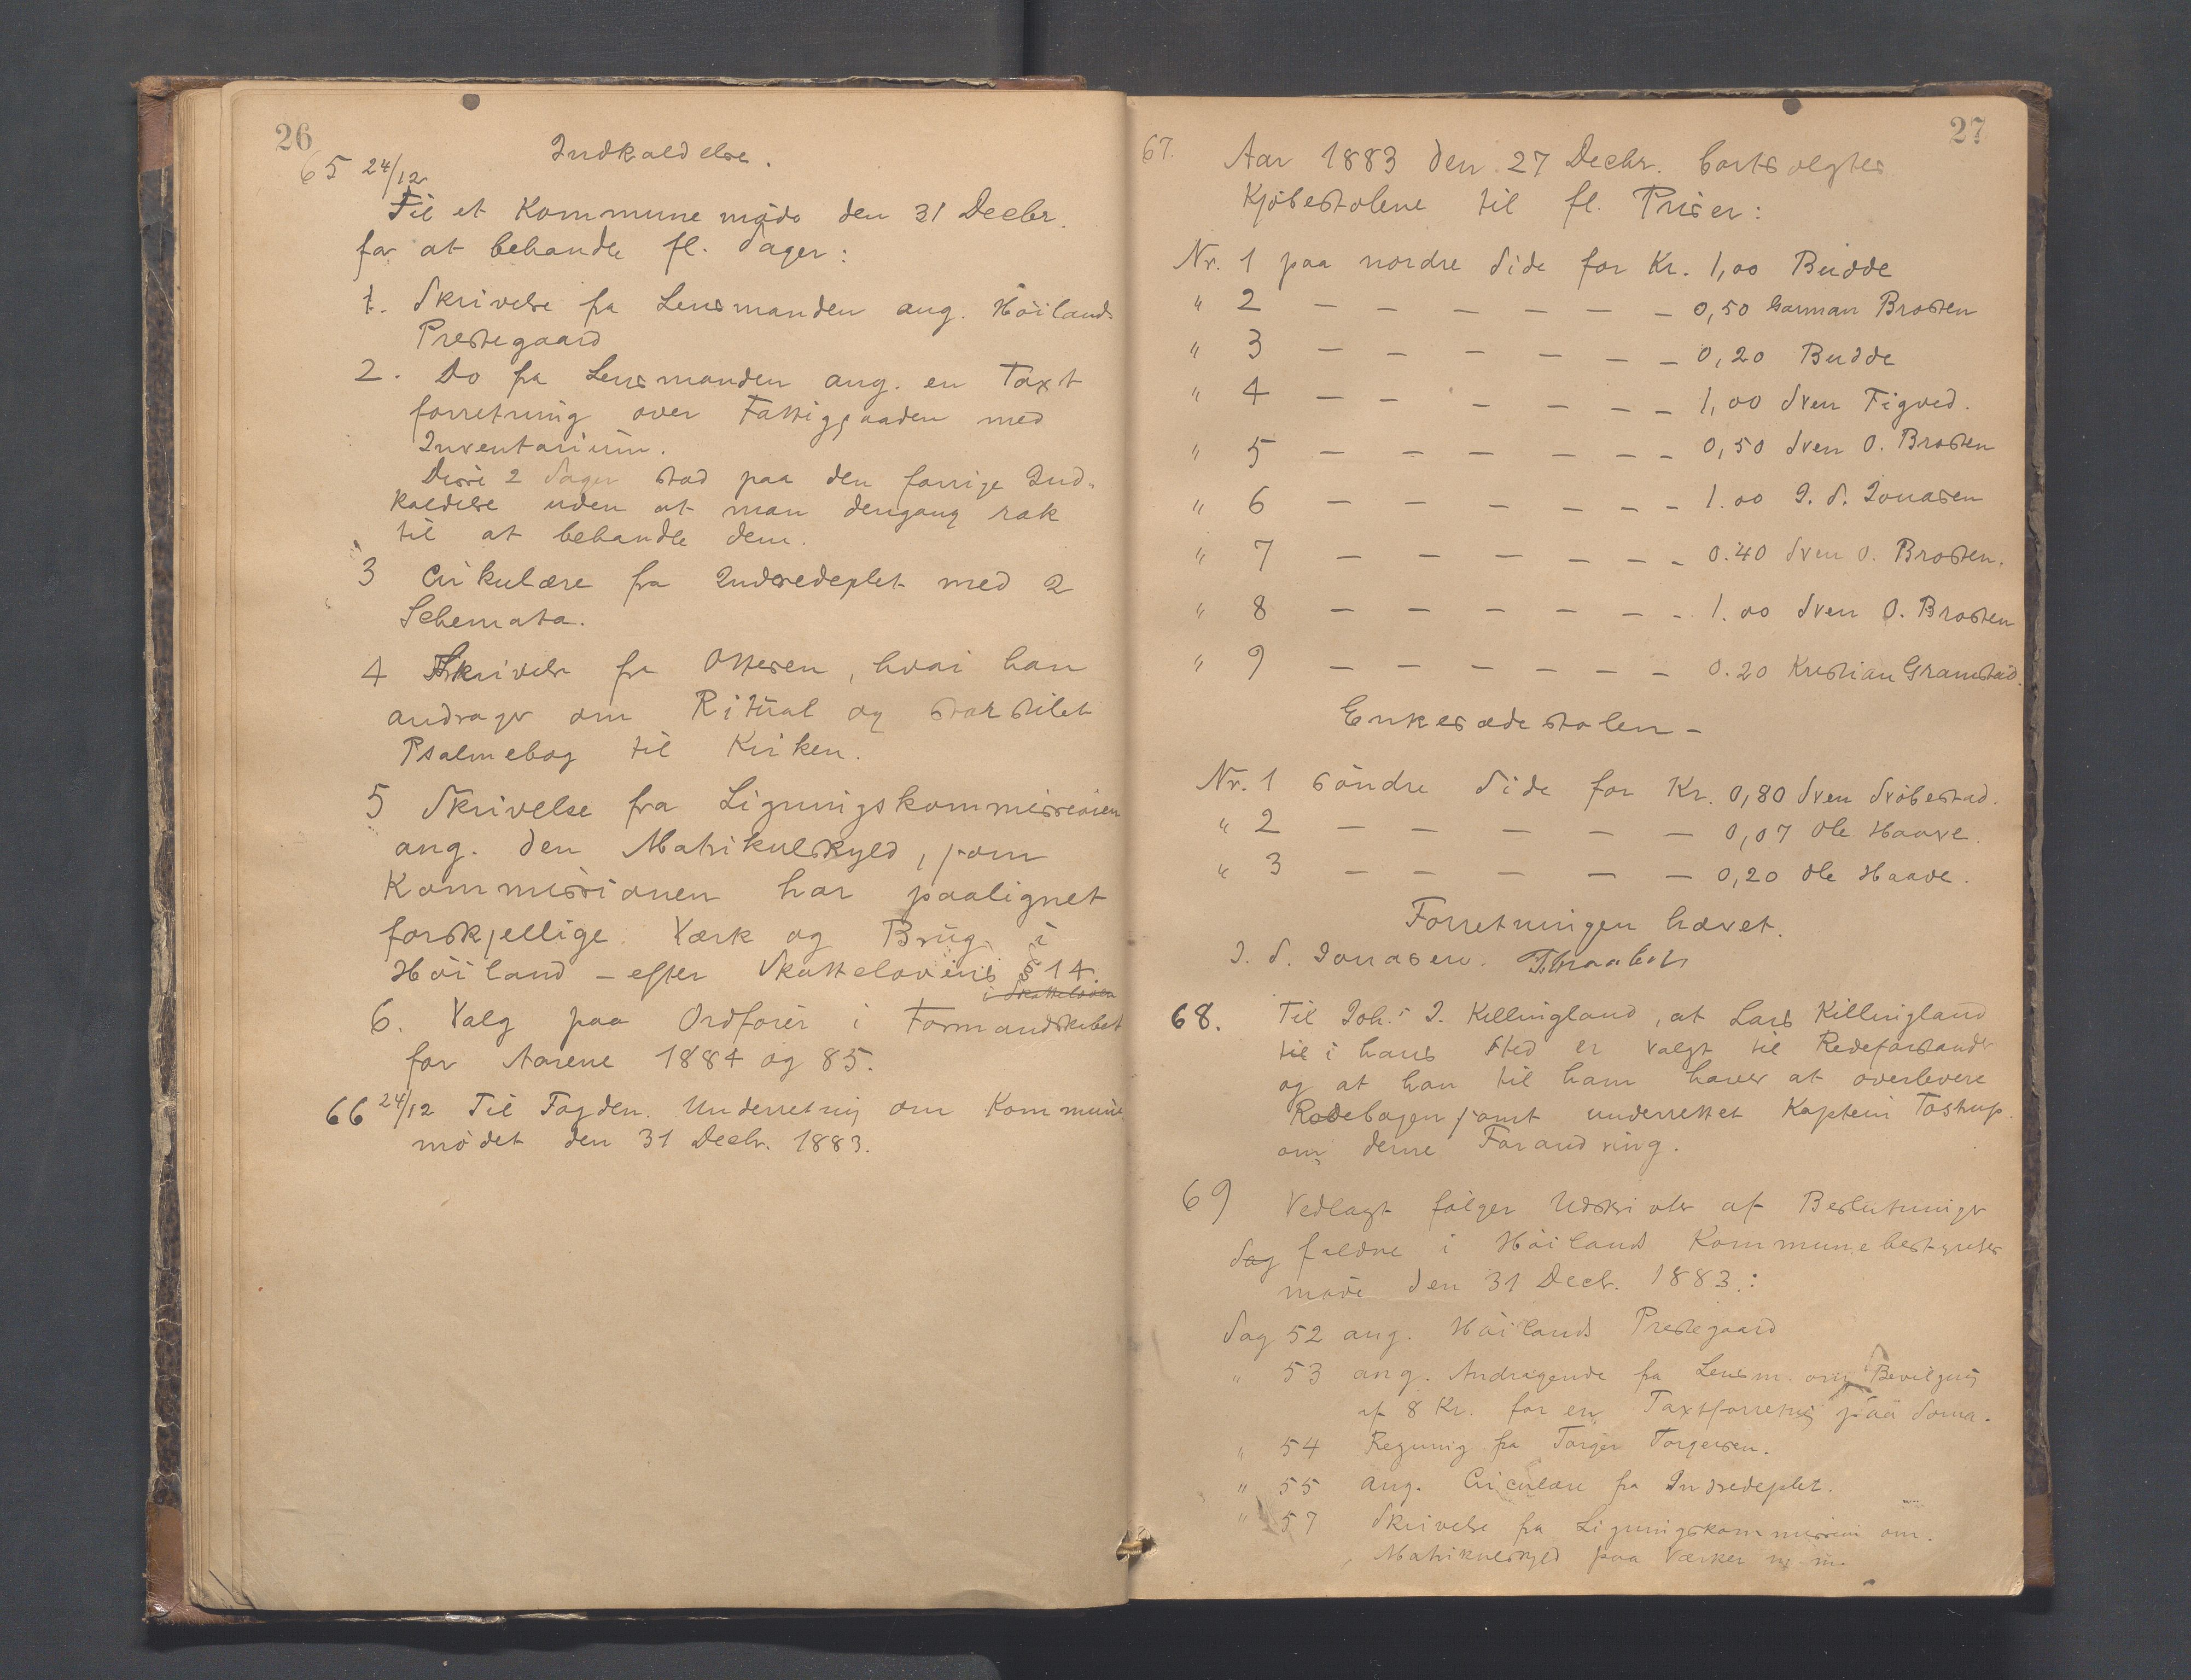 26
Indkaldelse.
65 24/12
Til et Kommunemøde den 31 Decbr.
for at behandle fl. Sager:
1. Skrivelse fra Lensmanden ang. Høilands
Prestegaard
2. Do fra Lensmanden ang. en Taxt
forretning over Fattiggaarden med
Inventarium.
Disse 2 Sager stod paa den forrige Ind-
kaldelse uden at man dengang rak
til at behandle dem.
3 Cirkulære fra Indredeptet med 2
Schemata.
4 Skrivelse fra Ottesen, hvori han
andrager om Ritual og storstilet
Psalmebog til Kirken.
5 Skrivelse fra Ligningskommissionen
ang. den Matrikulskyld, som
Kommissionen har paalignet
forskjellige Værk og Brug i
Høiland – efter Skattelovens § 14.
i Skatteloven
6. Valg paa Ordfører i Formandskabet
for Aarene 1884 og 85.
66 24/12 Til Fogden. Underretning om Kommune
mødet den 31 Decbr. 1883.
27
67. Aar 1883 den 27 Decbr. bortsolgtes
Kjøbestolene til fl. Priser:
Nr. 1 paa nordre Side for Kr. 1,00 Budde
" 2 – – – – – – 0,50 Garman Brosten
" 3 – – – – – – 0,20 Budde
" 4 – – – – – – 1,00 Sven Figved.
" 5 – – – – – – 0,50 Sven O. Brosten
" 6 – – – – – – 1.00 J. S. Jonasen
" 7 – – – – – – 0.40 Sven O. Brosten.
" 8 – – – – – – 1.00 Sven O. Brosten
" 9 – – – – – – 0.20 Kristian Gramstad.
Enkesædestolen –
Nr. 1 søndre Side for Kr. 0,80 Sven Svøbestad.
" 2 – – – – – 0,07 Ole Haave.
" 3 – – – – – 0,20 Ole Haave.
Forretningen hævet.
J. S. Jonasen.
68. Til Joh. J. Killingland, at Lars Killingland
til i hans Sted er valgt til Rodeforstander
og at han til ham haver at overlevere
Rodebogen samt underrettet Kaptein Tostrup
om denne Forandring.
69 Vedlagt følger Udskrivter af Beslutninger
Sag faldne i Høilands Kommunebestyrelses
møde den 31 Decb. 1883.:
Sag 52 ang. Høilands Prestegaard
" 53 ang. Andragende fra Lensm. om Bevilgning
af 8 Kr. for en Taxtforretning paa Soma.
" 54 Regning fra Torger Torgersen.
" 55 ang. Circulære fra Indredeptet.
" 57 Skrivelse fra Ligningskommissionen om
Matrikulskyld paa Værker m. m.